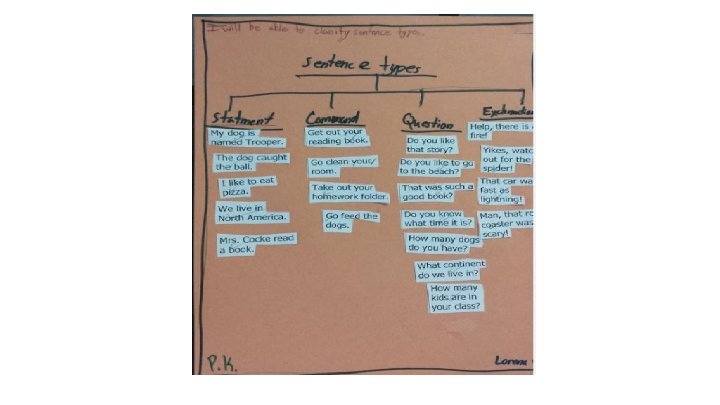 I will be able to classify sentence type.
Sentence types
Statment
My dog is
named Trooper.
The dog caught
the ball.
I like to eat
pizza.
We live in
North America.
Mrs. Cocke read
a book.
Command
Get out your
reading book.
Go clean your
room.
Take out your
homework folder.
Go feed the
dogs.
Question
Do you like
that story?
Do you like to go
to the beach?
That was such a
good book?
Do you know
what time it is?
How many dogs
do you have?
What continent
do we live in?
How many
kids are in
your class?
Help, there is
fire!
Yikes, watc
out for the
spider!
That car wa
fast as
lightning!
Man, that ro
coaster was
scary!
P.K.